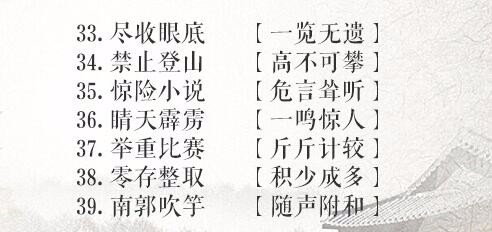 33.尽收眼底 【一览无遗】
34.禁止登山 【高不可攀】
35.惊险小说 【危言耸听】
36.晴天霹雳 【一鸣惊人】
37.举重比赛 【斤斤计较】
38.零存整取 【积少成多】
39.南郭吹竽 【随声附和】